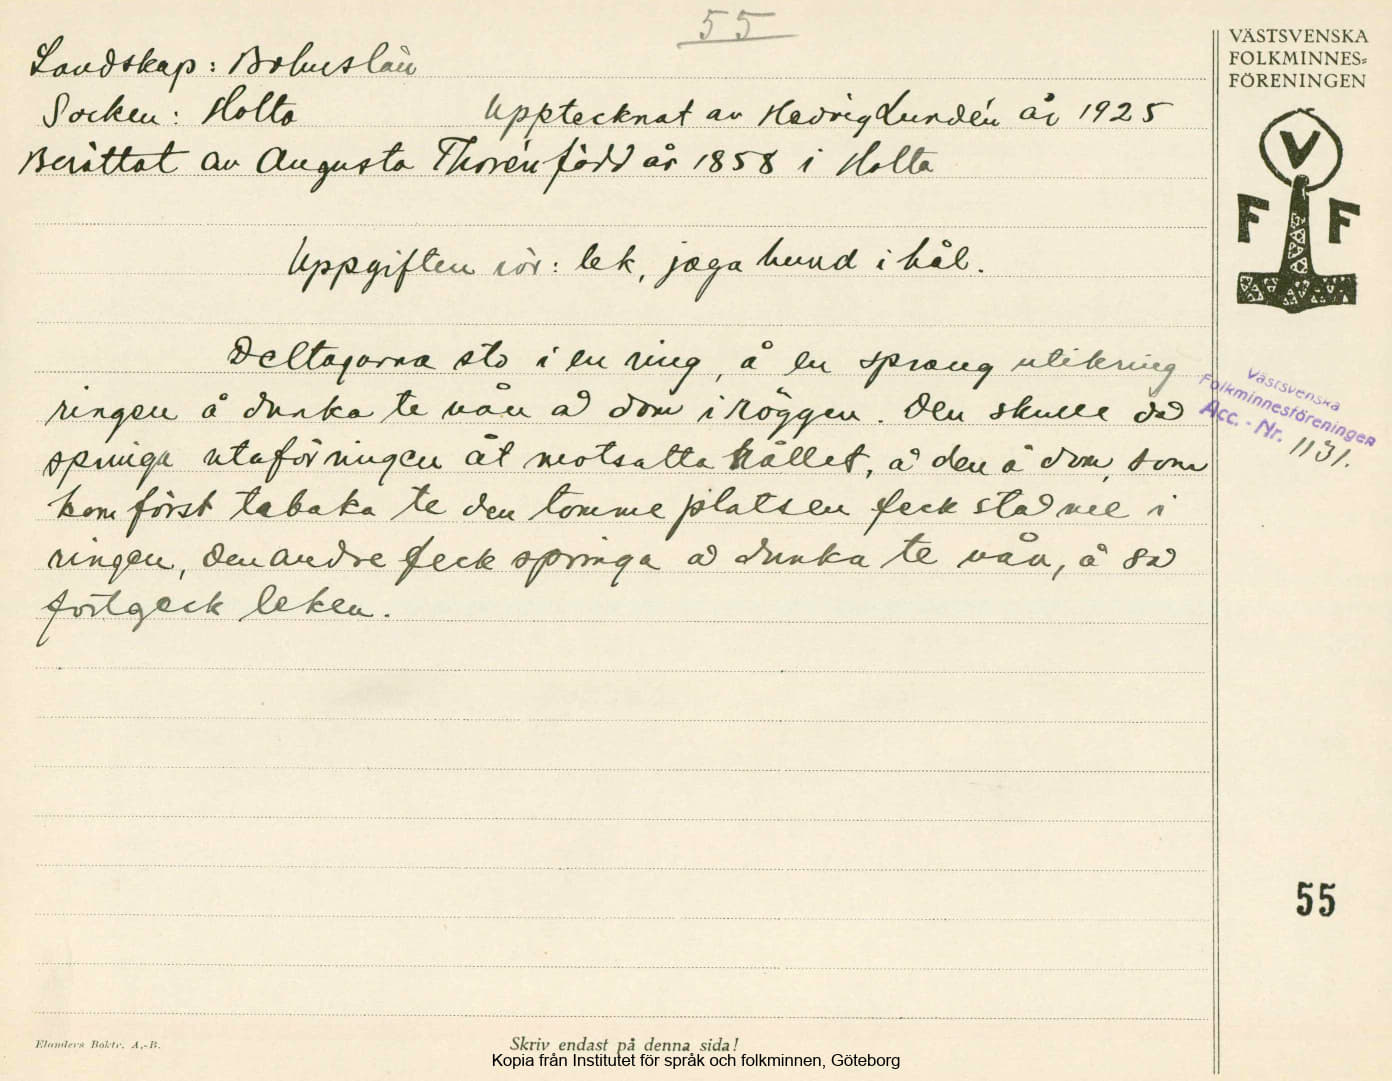 55
VÄSTSVENSKA
FOLKMINNES=
FÖRENINGEN
V
F F
Landskap: Bohuslän
Socken: Holta Upptecknat av Hedvig Lundén år 1925
Berättat av Augusta Thorén född år 1858 i Holta
Uppgiften rör: lek, jaga hund i hål.
Deltagarna sto i en ring, å en sprang utikring
ringen å dunka te nån a dom i röggen. Den skulle da
springa utaför ringen åt motsatta hållet, å den å dom, som
kom först tabaka te den tomme platsen feck sta nee i
ringen, den andre feck springa a dunka te nån, å sa
fortgeck leken.
Västsvenska
Folkminnesföreningen
Acc. - Nr. 1131.
55
Elanders Boktr. A.-B.
Skriv endast på denna sida!
Kopia från Institutet för språk och folkminnen, Göteborg